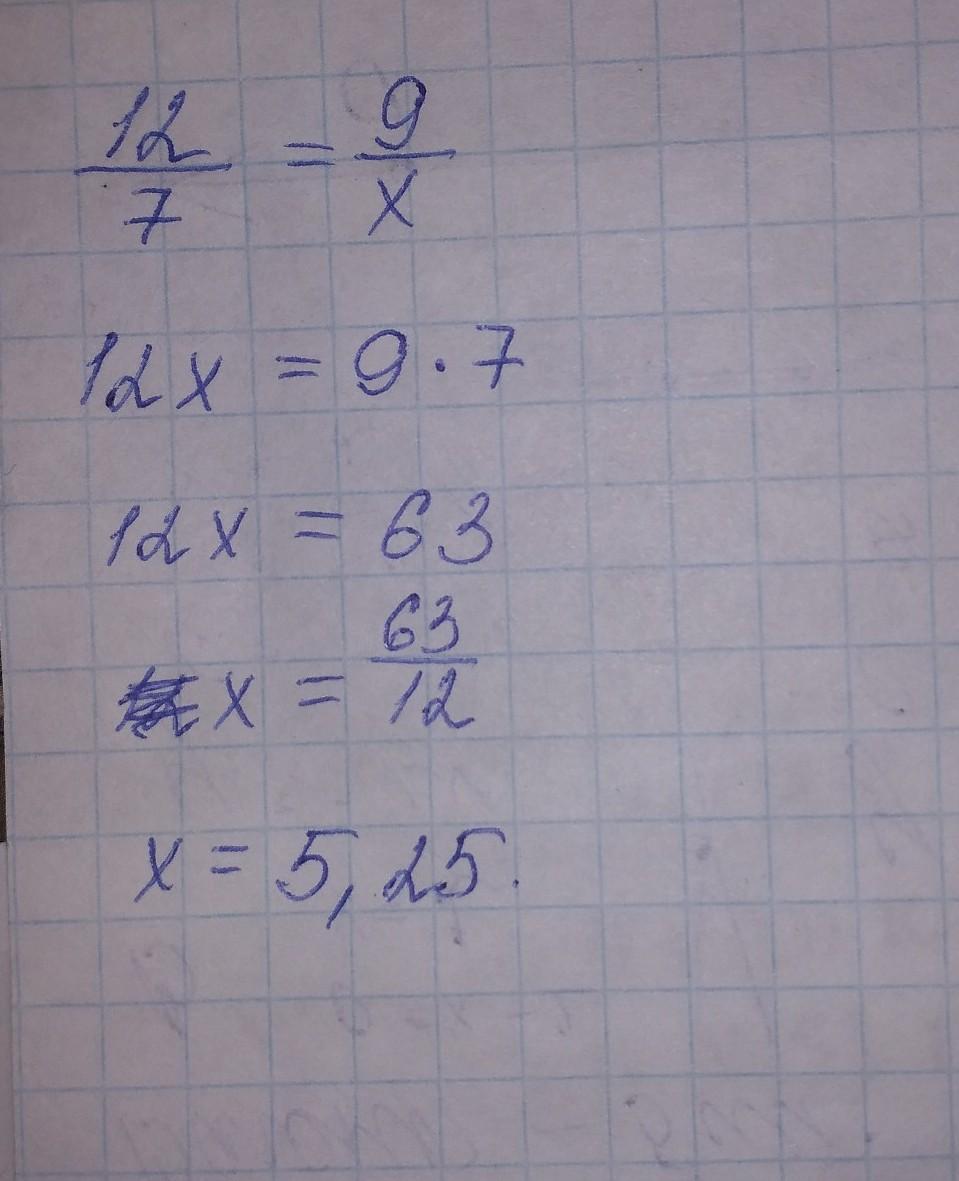 12/7 = 9/x
12x = 9·7
12x = 63
x = 63/12
x = 5,25.